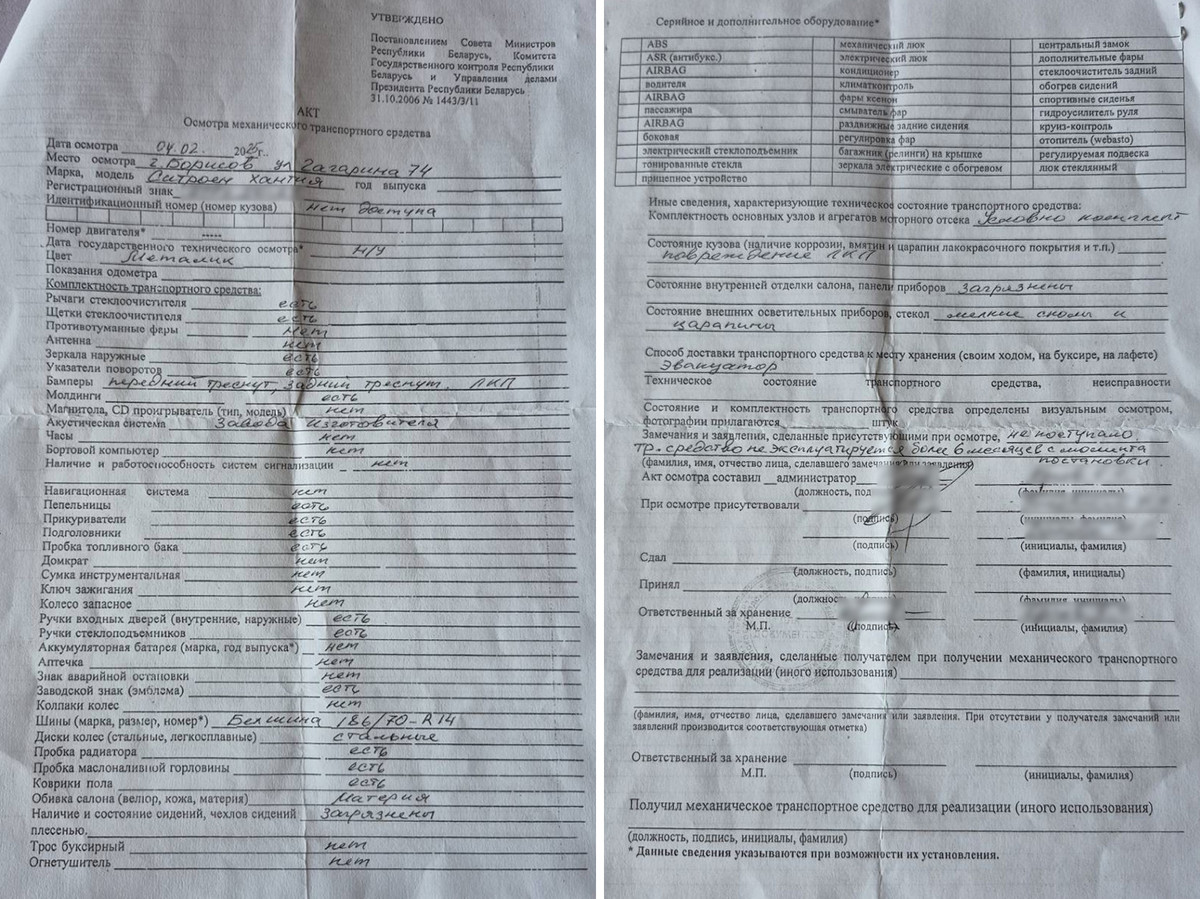 УТВЕРЖДЕНО
Постановлением Совета Министров
Республики Беларусь, Комитета
Государственного контроля Республики
Беларусь и Управления делами
Президента Республики Беларусь
31.10.2006 № 1443/3/11
АКТ
Осмотра механического транспортного средства
Дата осмотра 04.02. 2025г.
Место осмотра г. Борисов ул Гагарина 74
Марка, модель Ситроен Хантия год выпуска
Регистрационный знак
Идентификационный номер (номер кузова) нет доступа
Номер двигателя* -----
Дата государственного технического осмотра* Н/У
Цвет Металик
Показания одометра
Комплектность транспортного средства:
Рычаги стеклоочистителя есть
Щетки стеклоочистителя есть
Противотуманные феры нет
Антенна нет
Зеркала наружные есть
Указатели поворотов есть
Бамперы передний треснут, задний треснут. ЛКП
Молдинги есть
Магнитола, CD проигрыватель (тип, модель) нет
Акустическая система Завода Изготовителя
Часы нет
Бортовой компьютер нет
Наличие и работоспособность систем сигнализации нет
Навигационная система нет
Пепельницы есть
Прикуриватели есть
Подголовники есть
Пробка топливного бака есть
Домкрат нет
Сумка инструментальная нет
Ключ зажигания нет
Колесо запасное нет
Ручки входных дверей (внутренние, наружные) есть
Ручки стеклоподъемников есть
Аккумуляторная батарея (марка, год выпуска*) нет
Аптечка нет
Знак аварийной остановки нет
Заводской знак (эмблема) есть
Колпаки колес нет
Шины (марка, размер, номер*) Белшина 186/70-R14
Диски колес (стальные, легкосплавные) стальные
Пробка радиатора есть
Пробка маслоналивной горловины есть
Коврики пола есть
Обивка салона (велюр, кожа, материя) Материя
Наличие и состояние сидений, чехлов сидений загрязнены
плесенью.
Трос буксирный нет
Огнетушитель нет
Серийное и дополнительное оборудование*
ABS механический люк центральный замок
ASR (антибукс.) электрический люк дополнительные фары
AIRBAG кондиционер стеклоочиститель задний
водителя климатконтроль обогрев сидений
AIRBAG фары ксенон спортивные сиденья
пассажира смыватель фар гидроусилитель руля
AIRBAG раздвижные задние сидения круиз-контроль
боковая регулировка фар отопитель (webasto)
электрический стеклоподъемник багажник (релинги) на крышке регулируемая подвеска
тонированные стекла зеркала электрические с обогревом люк стеклянный
прицепное устройство
Иные сведения, характеризующие техническое состояние транспортного средства:
Комплектность основных узлов и агрегатов моторного отсека Условно комплект
Состояние кузова (наличие коррозии, вмятин и царапин лакокрасочного покрытия и т.п.)
повреждение ЛКП
Состояние внутренней отделки салона, панели приборов загрязнены
Состояние внешних осветительных приборов, стекол мелкие сколы и
царапины
Способ доставки транспортного средства к месту хранения (своим ходом, на буксире, на лафете)
Эвакуатор
Техническое состояние транспортного средства, неисправности
Состояние и комплектность транспортного средства определены визуальным осмотром,
фотографии прилагаются штук
Замечания и заявления, сделанные присутствующими при осмотре, не поступало.
Тр. средство не эксплуатируется более 6 месяцев с момента
(фамилия, имя, отчество лица, сделавшего замечания или заявления) постановки.
Акт осмотра составил администратор
(должность, под
При осмотре присутствовали
(подпись) (инициалы, фамилия)
(подпись) (инициалы, фамилия)
Сдал
(должность, подпись) (фамилия, инициалы)
Принял
(должность (фамилия, инициалы)
Ответственный за хранение
М.П. (подпись) (инициалы, фамилия)
Замечания и заявления, сделанные получателем при получении механического транспортного
средства для реализации (иного использования)
(фамилия, имя, отчество лица, сделавшего замечания или заявления. При отсутствии у получателя замечаний или
заявлений производится соответствующая отметка)
Ответственный за хранение
М.П. (подпись) (инициалы, фамилия)
Получил механическое транспортное средство для реализации (иного использования)
(должность, подпись, инициалы, фамилия)
* Данные сведения указываются при возможности их установления.